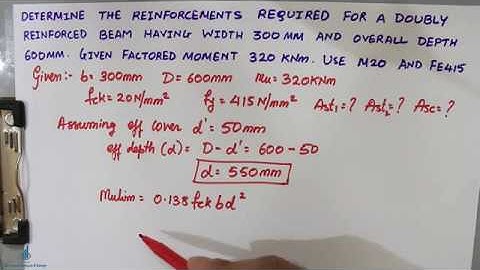 DETERMINE THE REINFORCEMENTS REQUIRED FOR A DOUBLY
REINFORCED BEAM HAVING WIDTH 300MM AND OVERALL DEPTH
600MM. GIVEN FACTORED MOMENT 320 KNm. USE M20 AND FE415
Given:- b = 300mm D = 600mm Mu = 320KNm
fck = 20N/mm² fy = 415N/mm² Ast₁ = ? Ast₂ = ? Asc = ?
Assuming eff cover d' = 50mm
eff depth (d) = D - d' = 600 - 50
d = 550mm
Mulim = 0.138 fck bd²